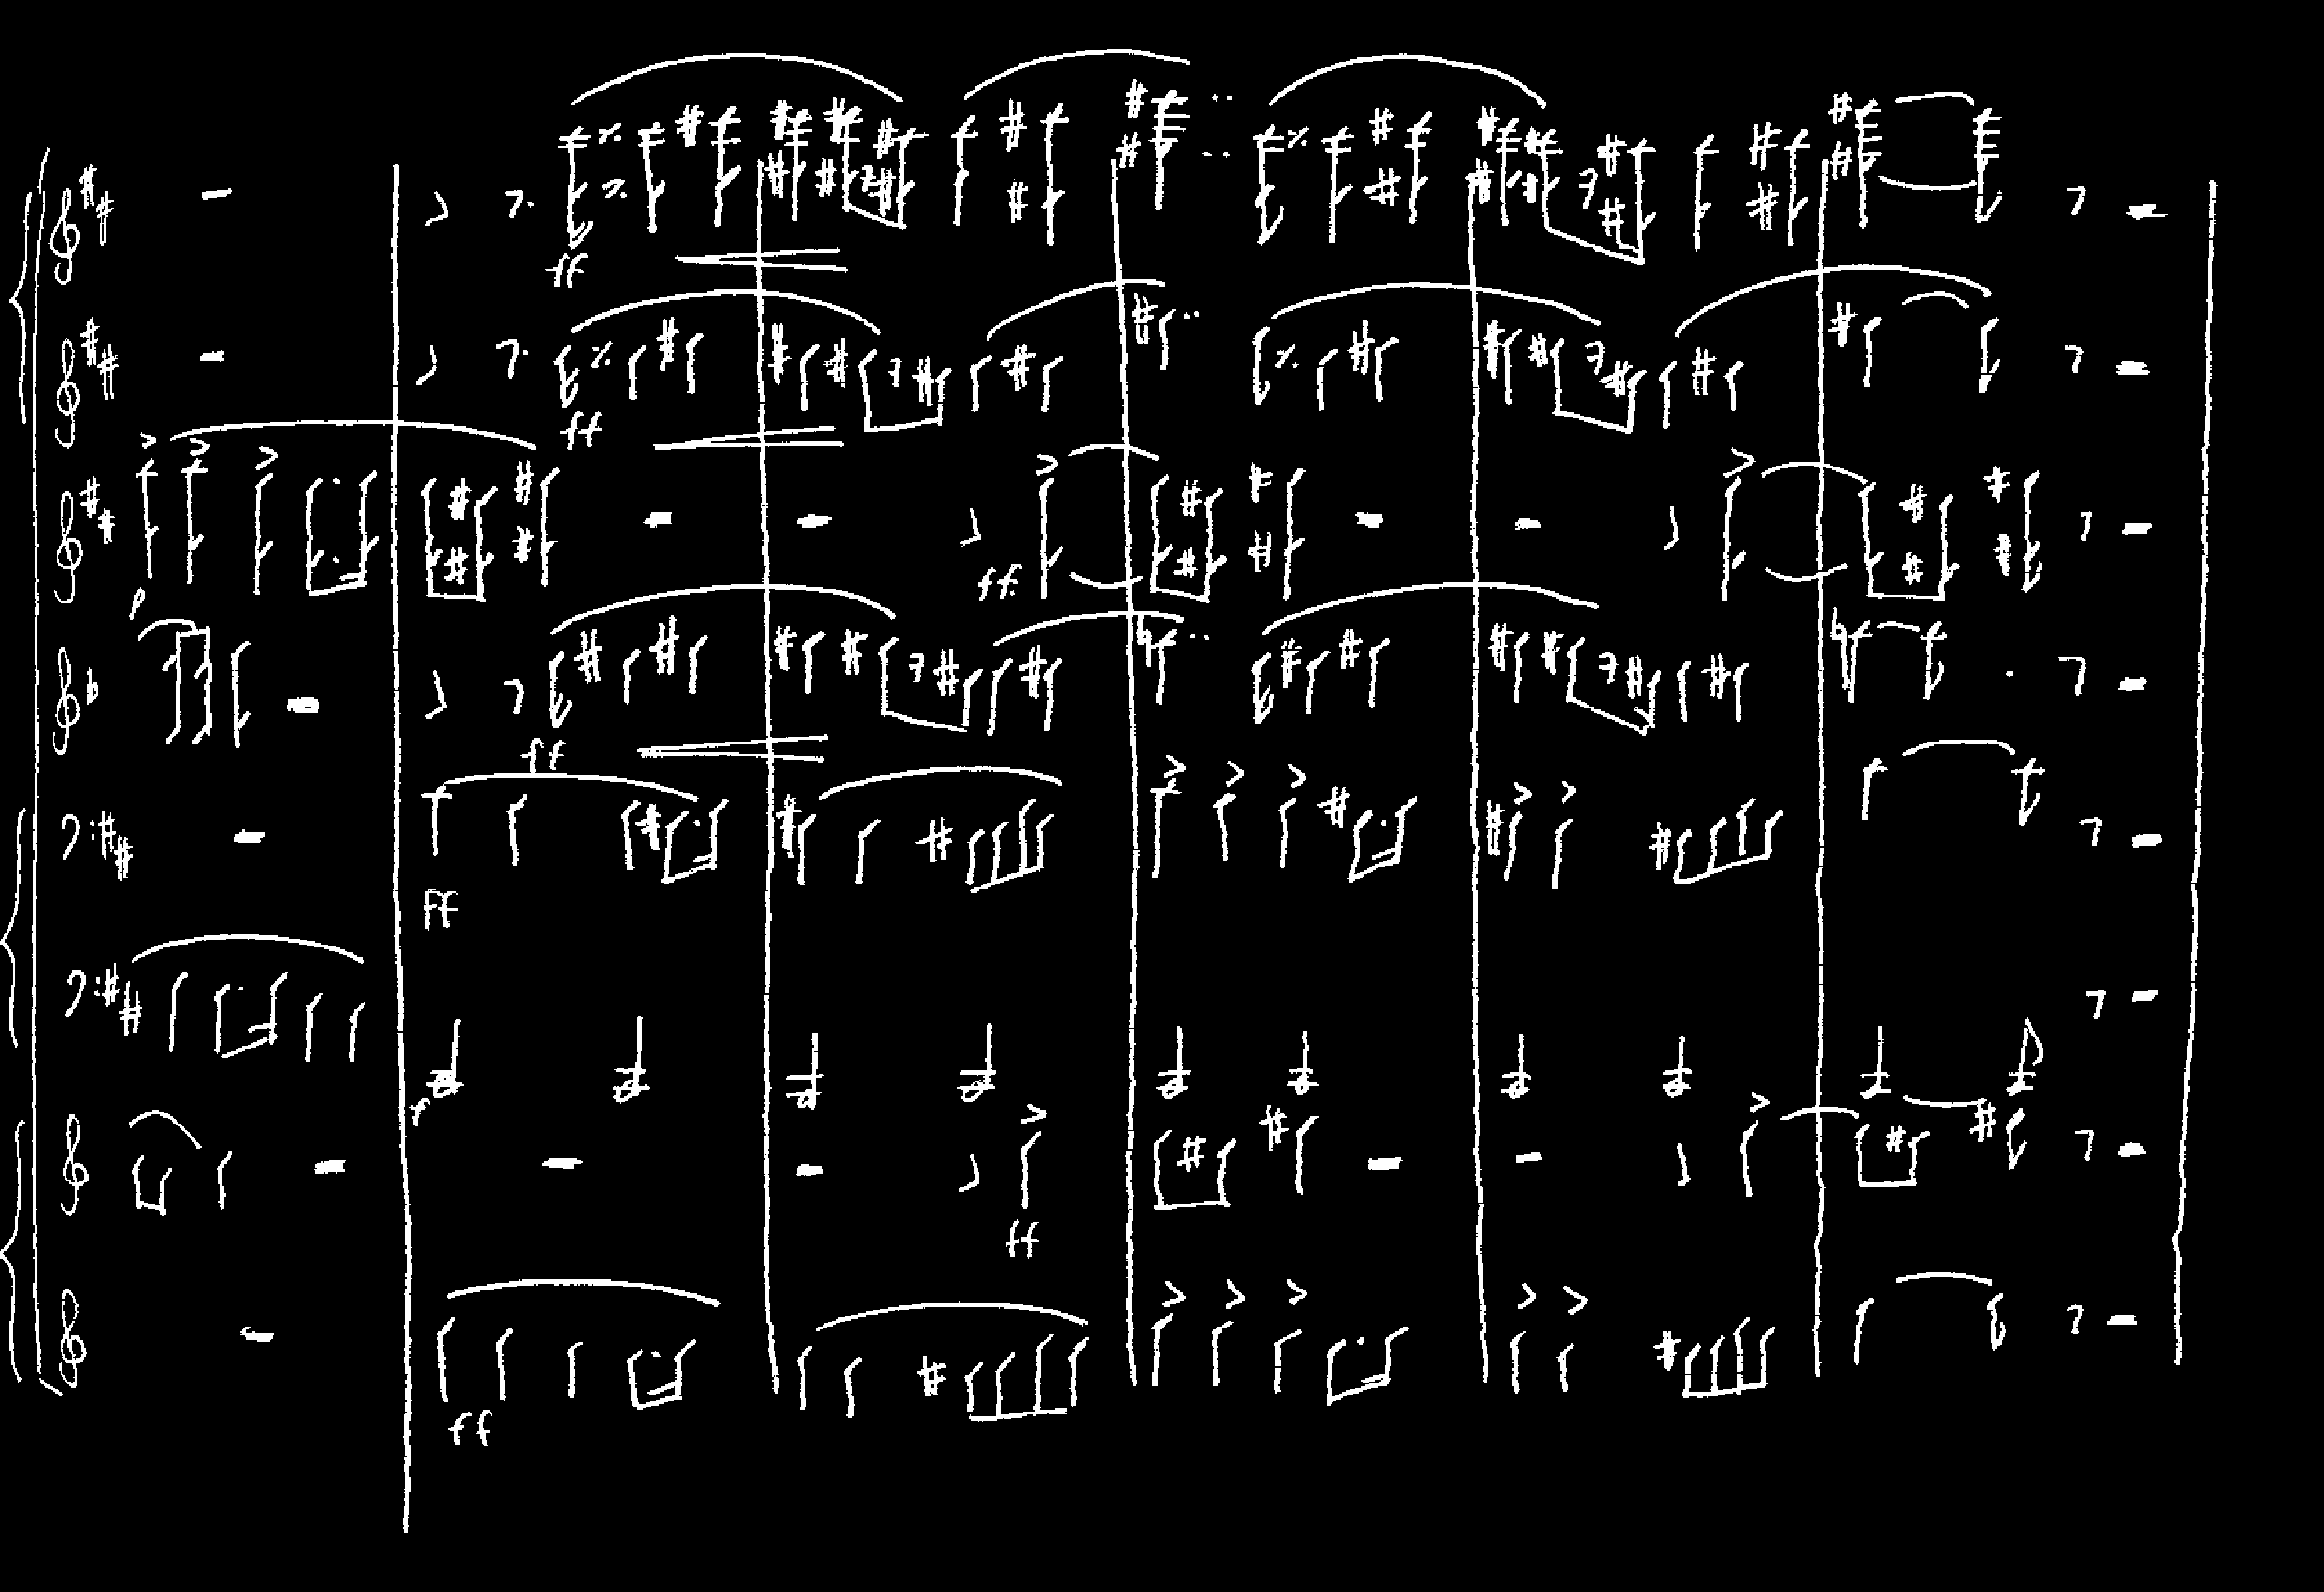 ff
ff
p
ff.
ff
ff
ff
ff